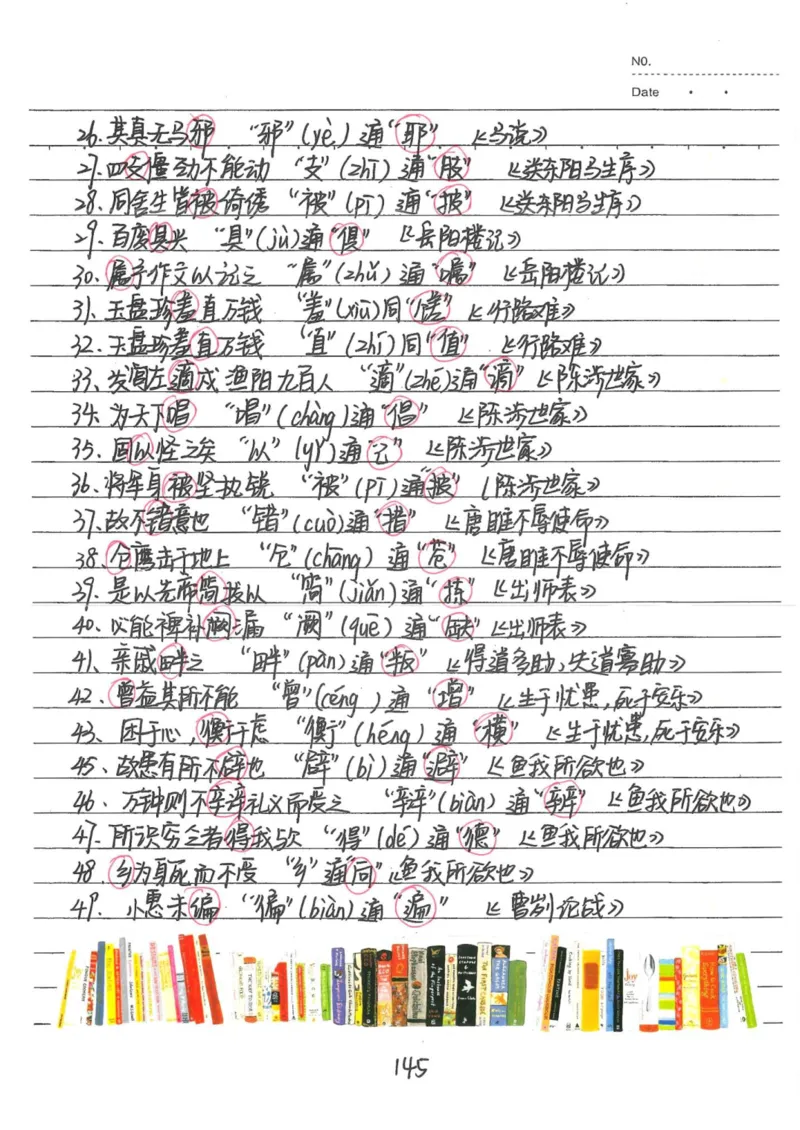 NO.
Date
26、其真无马邪 “邪”(yè)通“耶” 《马说》
27、四支僵劲不能动 “支”(zhī)通“肢” 《送东阳马生序》
28、同舍生皆被绮绣 “被”(pī)通“披” 《送东阳马生序》
29、百废具兴 “具”(jù)通“俱” 《岳阳楼记》
30、属予作文以记之 “属”(zhǔ)通“嘱” 《岳阳楼记》
31、玉盘珍羞直万钱 “羞”(xiū)同“馐” 《行路难》
32、玉盘珍羞直万钱 “直”(zhí)同“值” 《行路难》
33、发闾左適戍渔阳九百人 “適”(zhé)通“谪” 《陈涉世家》
34、为天下唱 “唱”(chàng)通“倡” 《陈涉世家》
35、固以怪之矣 “以”(yǐ)通“已” 《陈涉世家》
36、将军身被坚执锐 “被”(pī)通“披” 《陈涉世家》
37、故不错意也 “错”(cuò)通“措” 《唐雎不辱使命》
38、仓鹰击于地上 “仓”(cāng)通“苍” 《唐雎不辱使命》
39、是以先帝简拔以 “简”(jiǎn)通“拣” 《出师表》
40、必能裨补阙漏 “阙”(quē)通“缺” 《出师表》
41、亲戚畔之 “畔”(pàn)通“叛” 《得道多助,失道寡助》
42、曾益其所不能 “曾”(céng)通“增” 《生于忧患,死于安乐》
43、困于心,衡于虑 “衡”(héng)通“横” 《生于忧患,死于安乐》
45、故患有所不辟也 “辟”(bì)通“避” 《鱼我所欲也》
46、万钟则不辩礼义而受之 “辩”(biàn)通“辨” 《鱼我所欲也》
47、所识穷乏者得我与欤 “得”(dé)通“德” 《鱼我所欲也》
48、乡为身死而不受 “乡”通“向”《鱼我所欲也》
49、小惠未徧 “徧”(biàn)通“遍” 《曹刿论战》
145